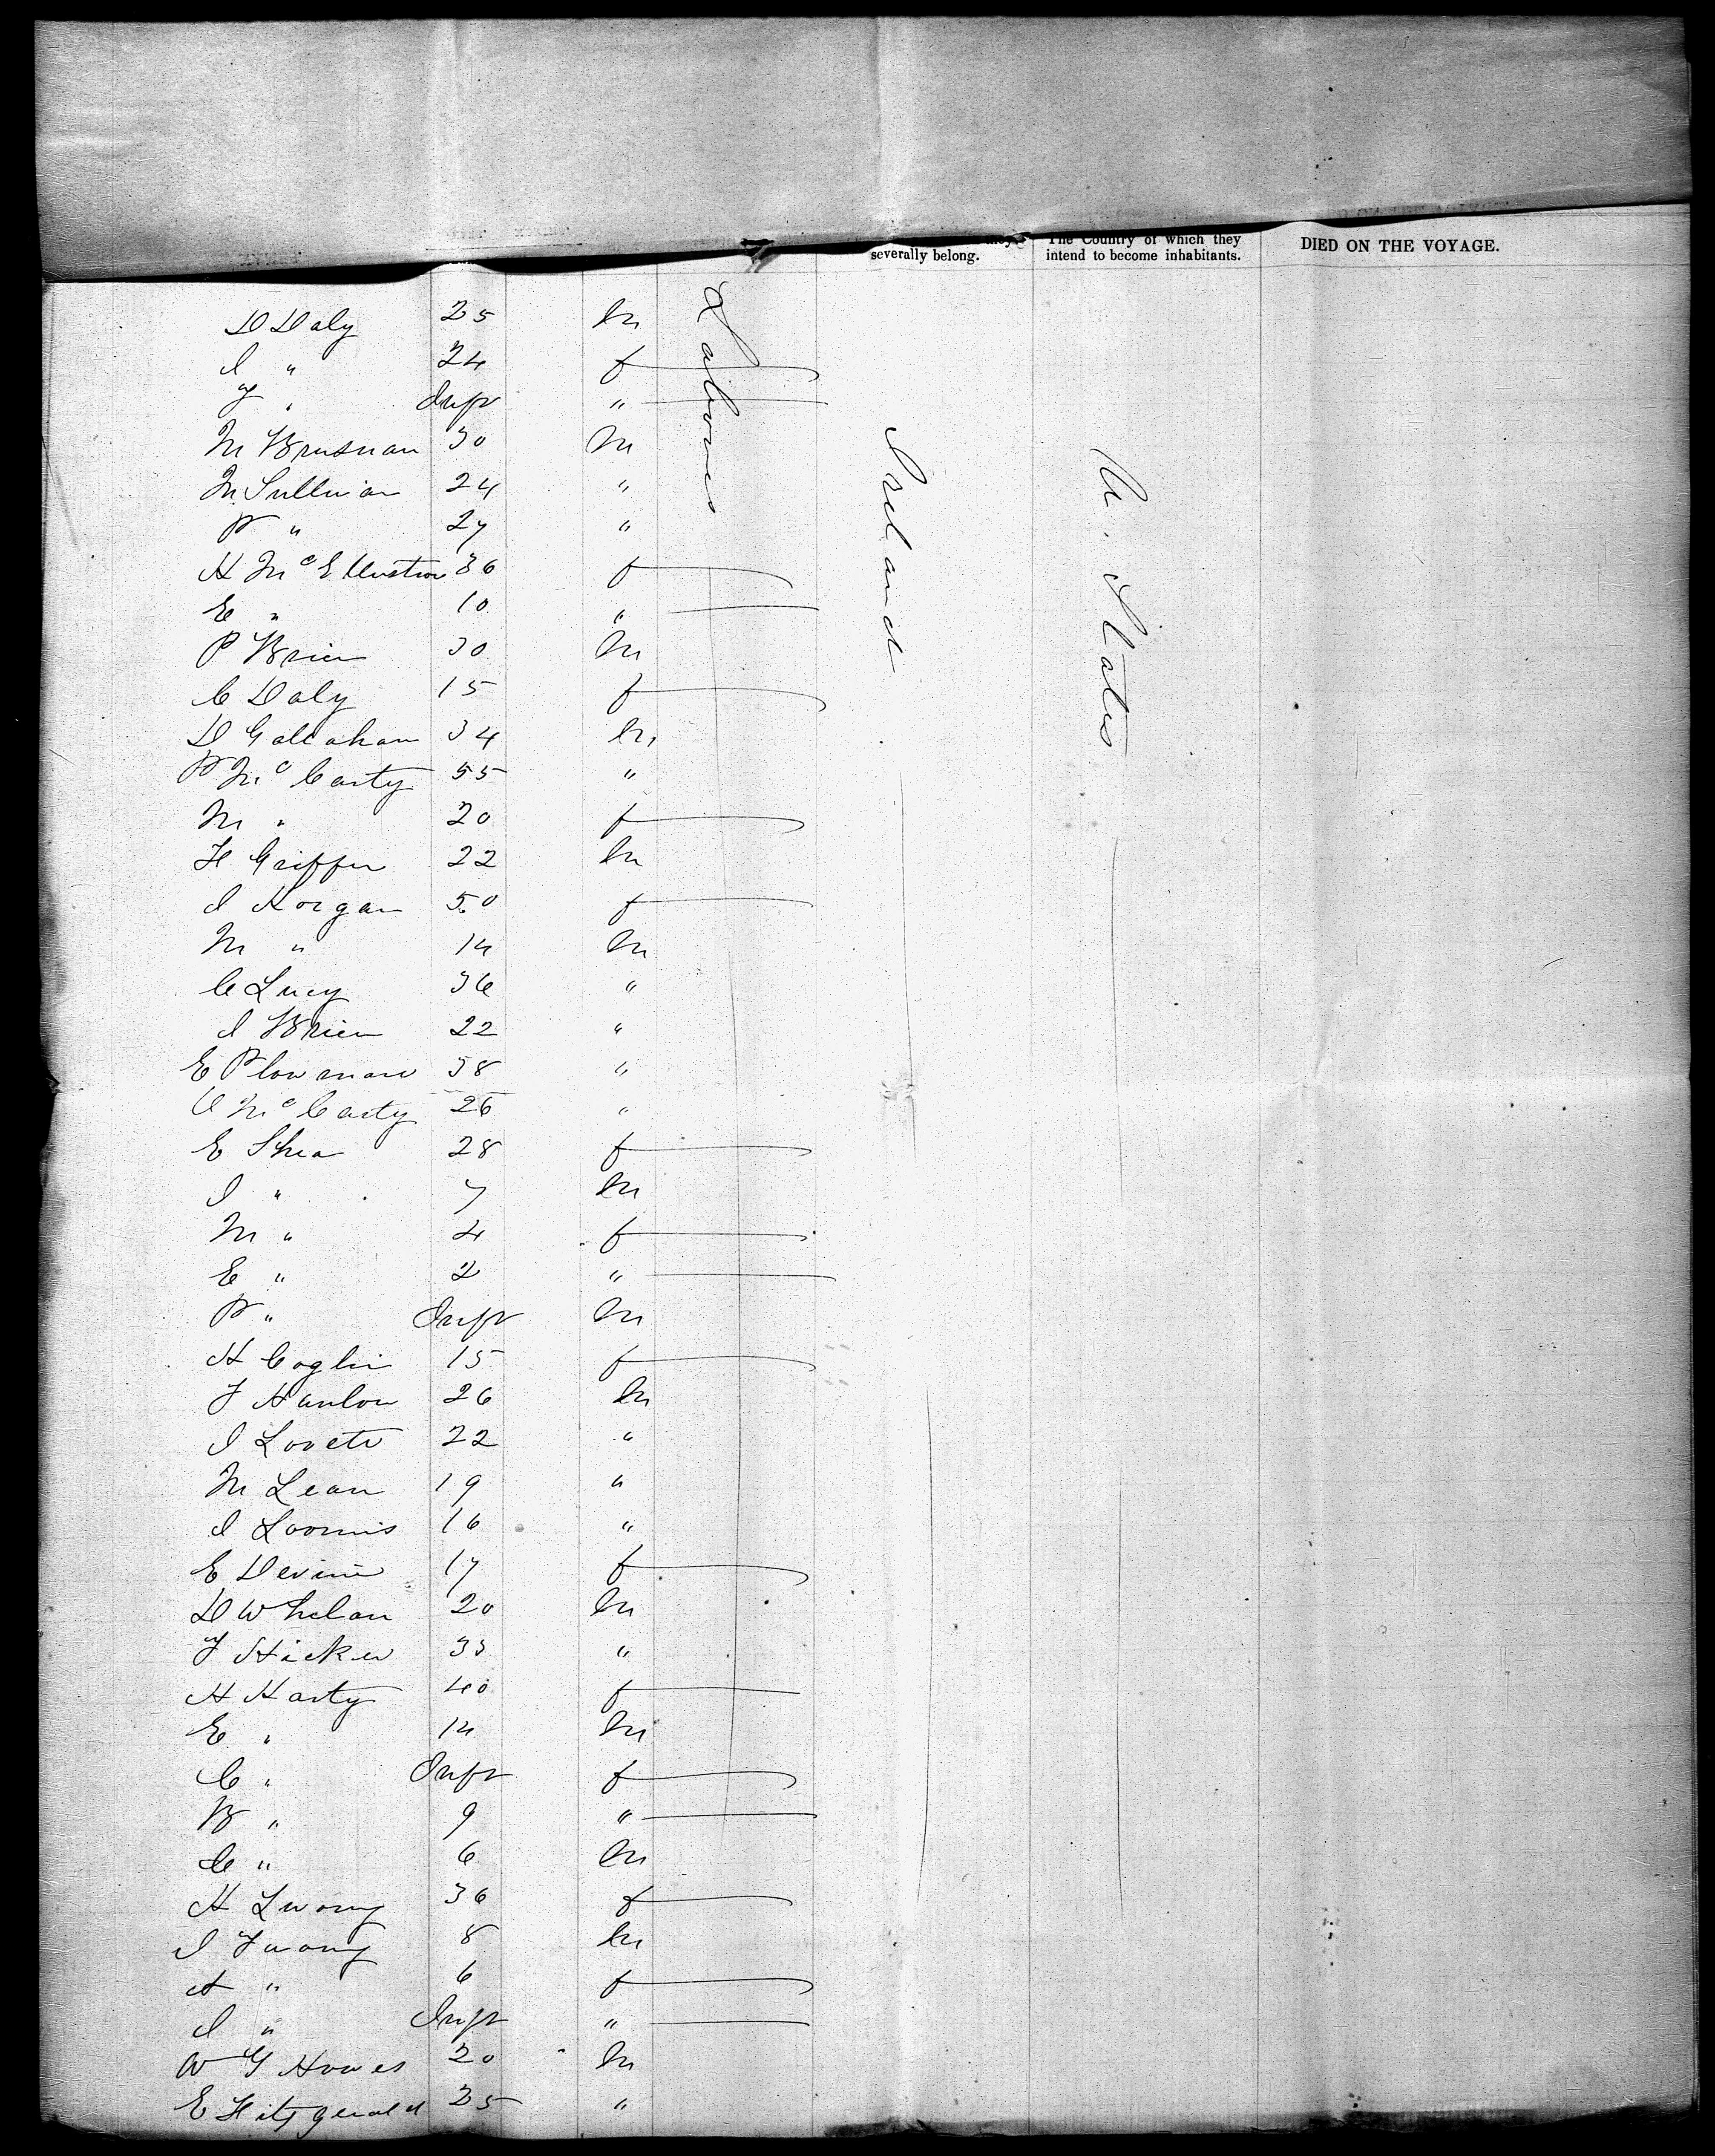 severally belong. The Country of which they intend to become inhabitants. DIED ON THE VOYAGE.
Labourers
Ireland
U. States
D Daly 25 m
J " 24 f
" Inft "
M Brusnan 30 m
M Sullivan 24 "
P " 27 "
H McEllustrow 36 f
E " 10 "
P Brien 30 m
C Daly 15 f
D Gallahan 34 m
P McCarty 55 "
M " 20 f
H Griffin 22 m
J Horgan 50 f
M " 14 m
C Lucy 36 "
J Brien 22 "
E Plowman 38 "
McCarty 26 "
E Shea 28 f
J " 7 m
M " 4 f
E " 2 "
P " Inft m
H Coglin 15 f
T Hanlon 26 m
J Lovett 22 "
M Lean 19 "
J Loomis 16 "
E Devine 17 f
D Whelan 20 m
T Hickey 33 "
H Harty 40 f
E " 14 m
C " Inft f
B " 9 "
C " 6 m
H 36 f
J Twomy 8 m
A " 6 f
J " Inft "
W G Howes 20 m
E Fitzgerald 25 "